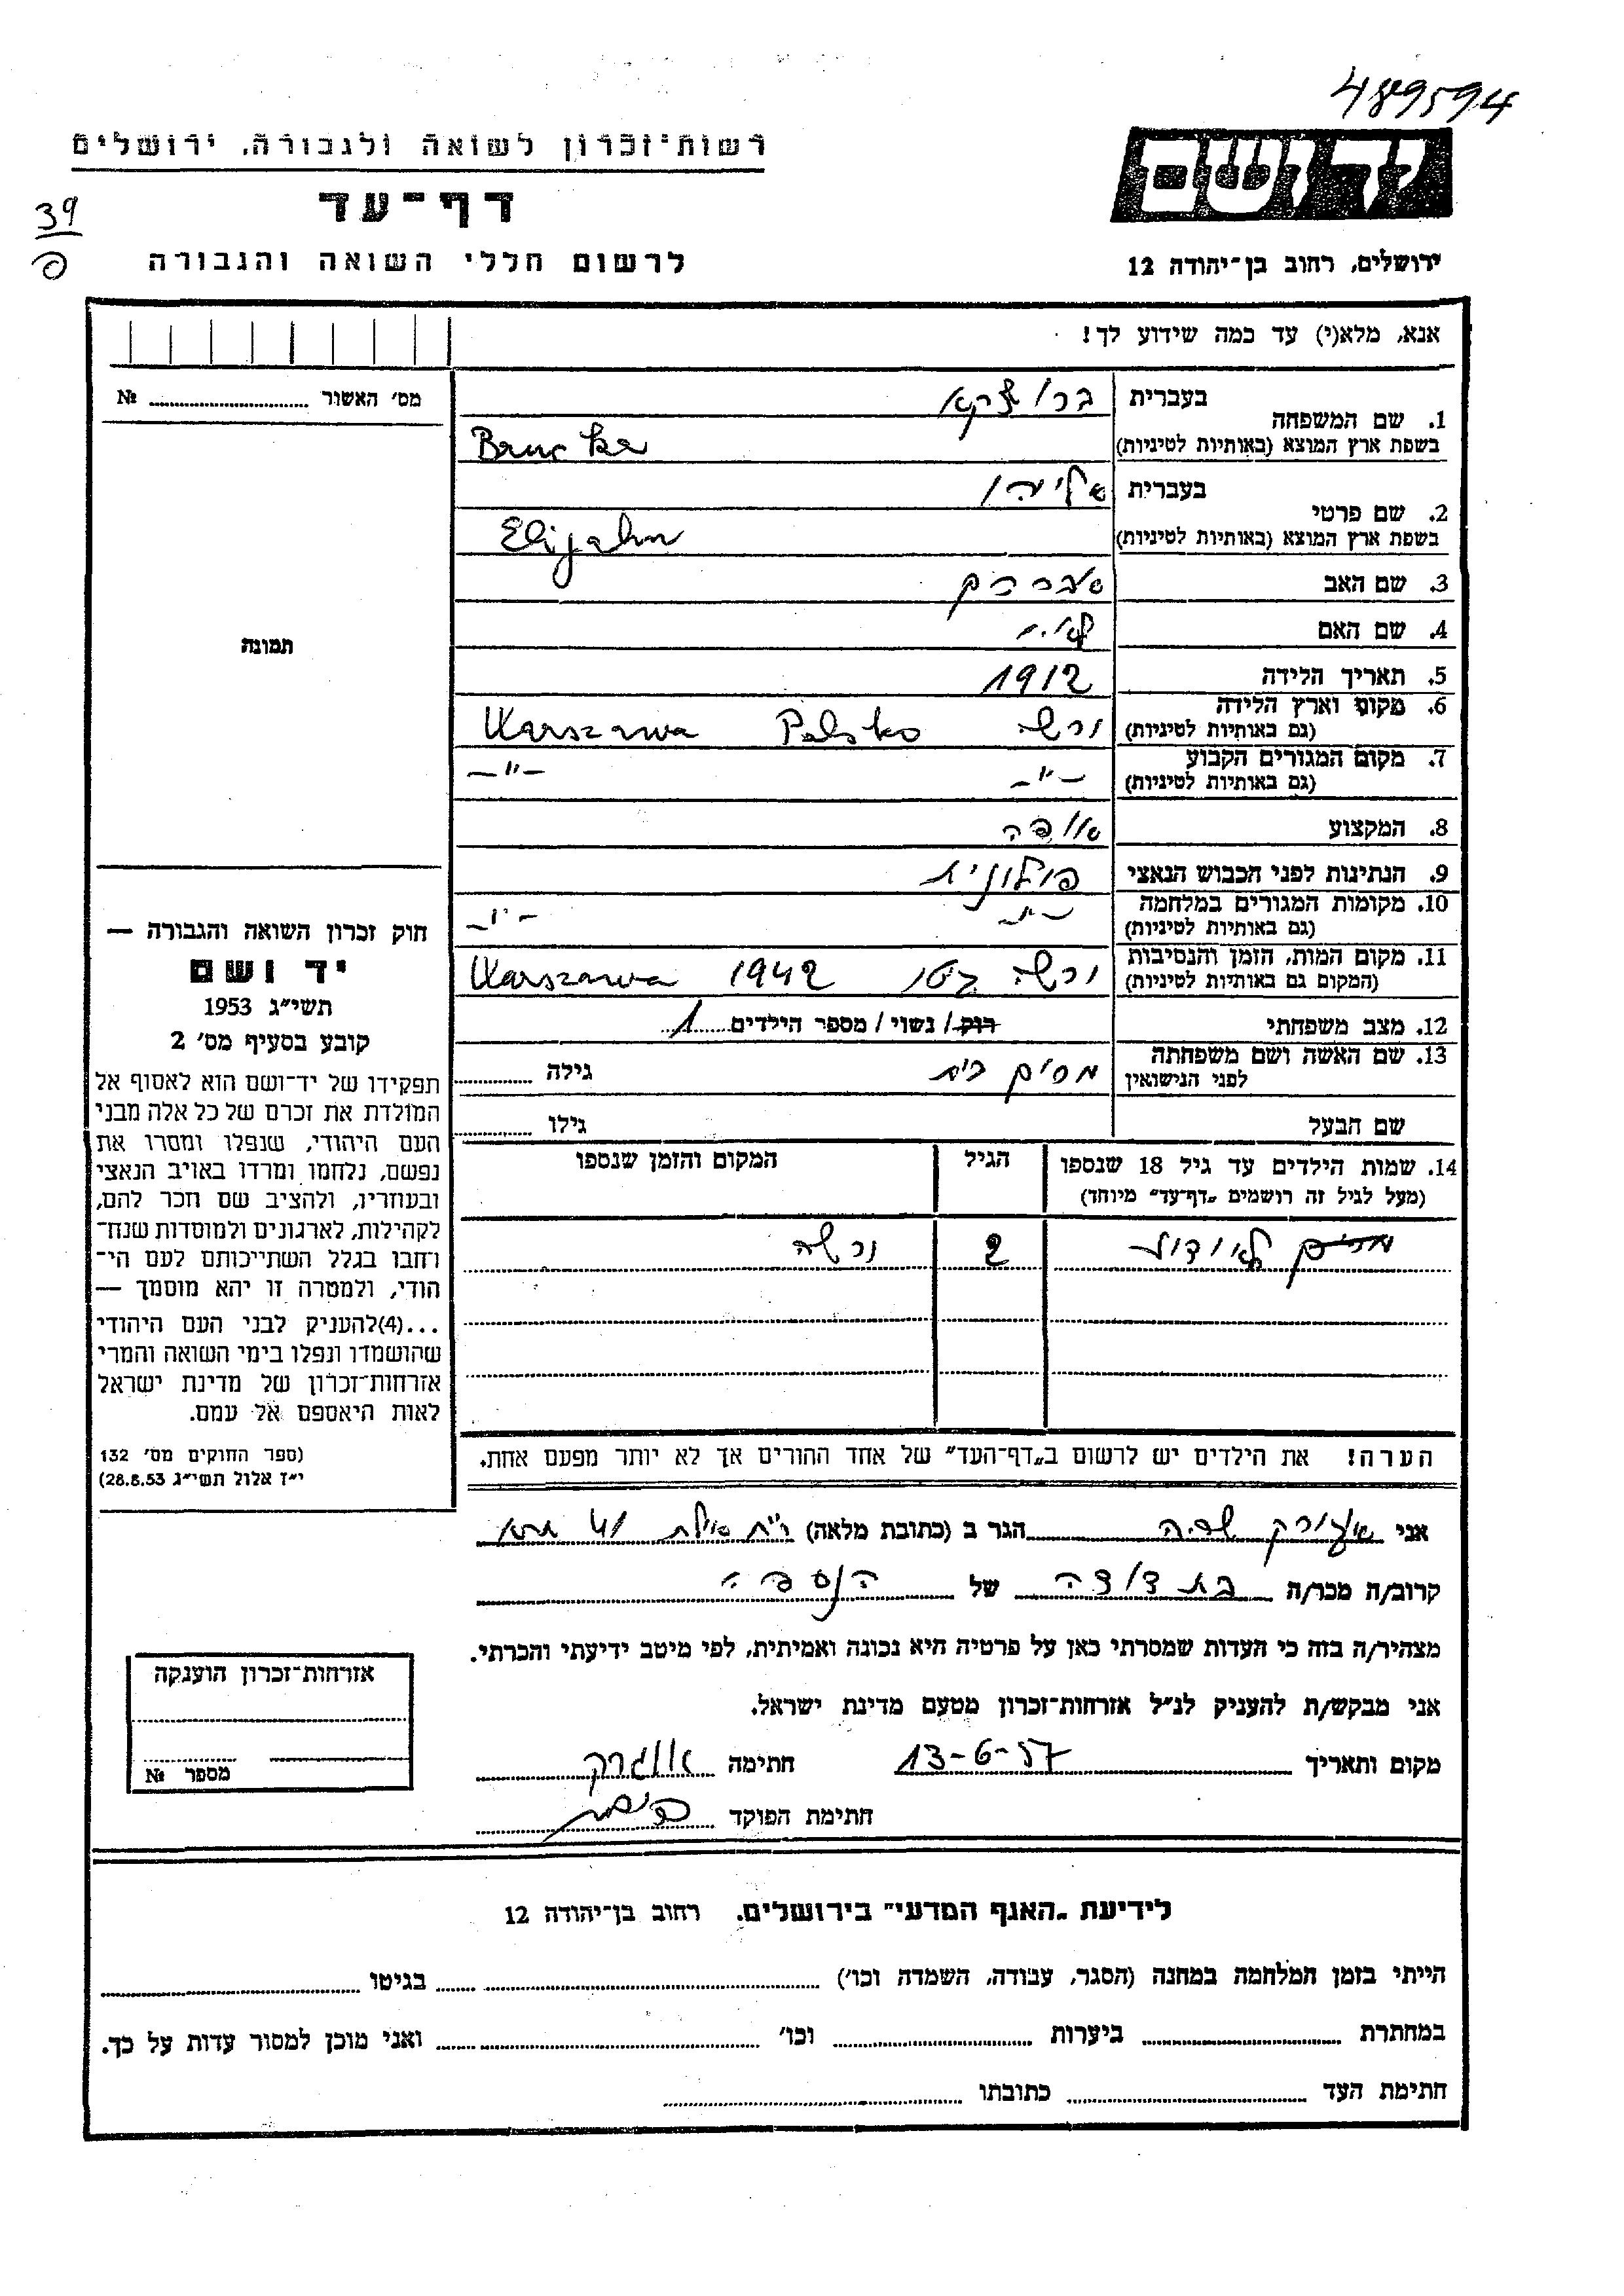 489594
רשות־זכרון לשואה ולגבורה, ירושלים
דף־עד
39
לרשום חללי השואה והגבורה
יד ושם
ירושלים, רחוב בן־יהודה 12
אנא, מלא(י) עד כמה שידוע לך!
מס׳ האשור № 
1. שם המשפחה
בעברית
בשפת ארץ המוצא (באותיות לטיניות)
2. שם פרטי
בעברית אליהו
בשפת ארץ המוצא (באותיות לטיניות) Elijahu
3. שם האב
4. שם האם
5. תאריך הלידה 1912
6. מקום וארץ הלידה
(גם באותיות לטיניות) ורשה Polska Warszawa
7. מקום המגורים הקבוע
(גם באותיות לטיניות) -"- -"-
8. המקצוע אופה
9. הנתינות לפני הכבוש הנאצי פולונית
10. מקומות המגורים במלחמה
(גם באותיות לטיניות) -"- -"-
11. מקום המות, הזמן והנסיבות
(המקום גם באותיות לטיניות) ורשה גטו 1942 Warszawa
12. מצב משפחתי רוק / נשוי / מספר הילדים 1
13. שם האשה ושם משפחתה
לפני הנישואין גילה
שם הבעל גילו
14. שמות הילדים עד גיל 18 שנספו הגיל המקום והזמן שנספו
(מעל לגיל זה רושמים „דף־עד״ מיוחד)
2 ורשה
הערה! את הילדים יש לרשום ב„דף־העד״ של אחד ההורים אך לא יותר מפעם אחת.
תמונה
חוק זכרון השואה והגבורה —
יד ושם
תשי״ג 1953
קובע בסעיף מס׳ 2
תפקידו של יד־ושם הוא לאסוף אל
המולדת את זכרם של כל אלה מבני
העם היהודי, שנפלו ומסרו את
נפשם, נלחמו ומרדו באויב הנאצי
ובעוזריו, ולהציב שם וזכר להם,
לקהילות, לארגונים ולמוסדות שנח־
רובו בגלל השתייכותם לעם הי־
הודי, ולמטרה זו יהא מוסמך —
...(4)להעניק לבני העם היהודי
שהושמדו ונפלו בימי השואה והמרי
אזרחות־זכרון של מדינת ישראל
לאות היאספם אל עמם.
(ספר החוקים מס׳ 132
י״ז אלול תשי״ג 28.8.53)
אני הגר ב (כתובת מלאה)
קרוב/ה מכר/ה בת דודה של הנספה
מצהיר/ה בזה כי העדות שמסרתי כאן על פרטיה היא נכונה ואמיתית, לפי מיטב ידיעתי והכרתי.
אני מבקש/ת להעניק לנ״ל אזרחות־זכרון מטעם מדינת ישראל.
מקום ותאריך 13-6-57 חתימה
חתימת הפוקד
אזרחות־זכרון הוענקה
מספר №
לידיעת „האגף המדעי״ בירושלים, רחוב בן־יהודה 12
הייתי בזמן המלחמה במחנה (הסגר, עבודה, השמדה וכו׳) בגיטו
במחתרת ביערות וכו׳ ואני מוכן למסור עדות על כך.
חתימת העד כתובתו